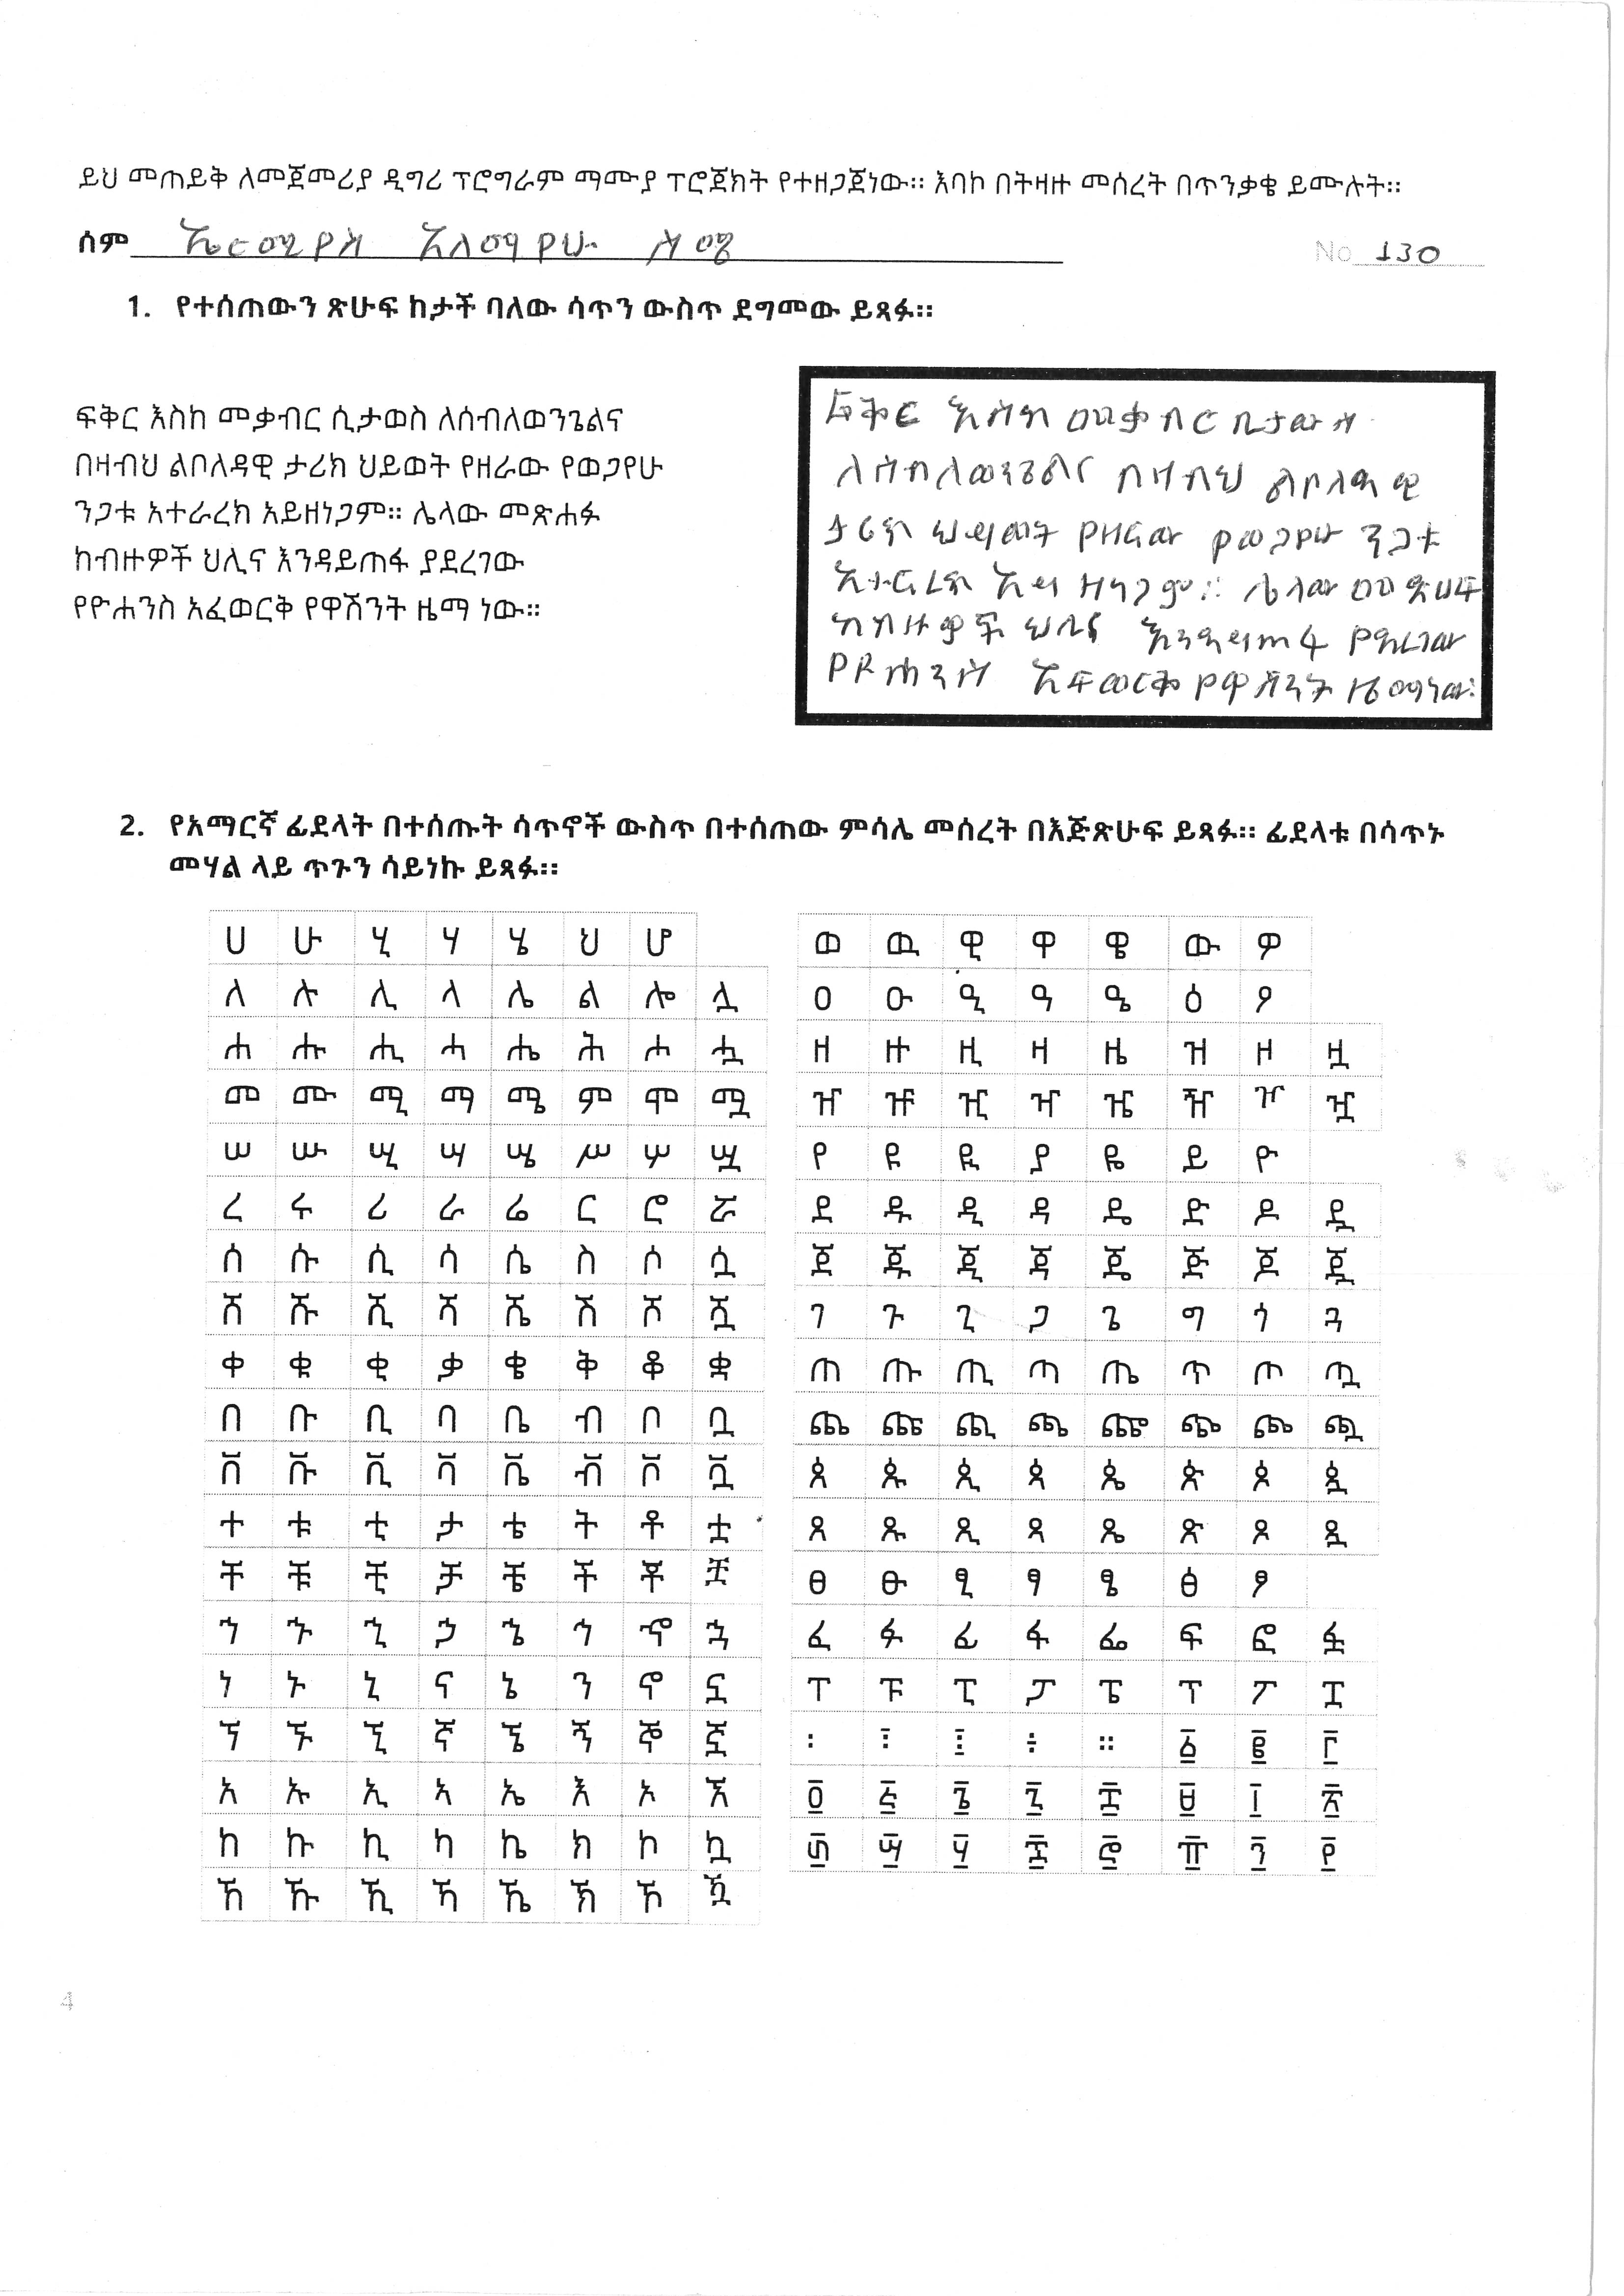 ይህ መጠይቅ ለመጀመሪያ ዲግሪ ፕሮግራም ማሙያ ፕሮጀክት የተዘጋጀነው። እባኮ በትዛዙ መሰረት በጥንቃቄ ይሙሉት።
ሰም ኤርሚያስ አለማየሁ ስሜ No 130
1. የተሰጠውን ጽሁፍ ከታች ባለው ሳጥን ውስጥ ደግመው ይጻፉ።
ፍቅር እስከ መቃብር ሲታወስ ለሰብለወንጌልና
በዛብህ ልቦለዳዊ ታሪክ ህይወት የዘራው የወጋየሁ
ንጋቱ አተራረክ አይዘነጋም። ሌላው መጽሐፉ
ከብዙዎች ህሊና እንዳይጠፋ ያደረገው
የዮሐንስ አፈወርቅ የዋሽንት ዜማ ነው።
ፍቅር እስከ መቃብር ቢታውስ
ለሰብለወንጌልና በዛብህ ልቦለዳዊ
ታሪክ ህይወት የዘራው የወጋየሁ ንጋቱ
አተራረክ አይዘነጋም። ሌላው መጽሀፉ
ከብዙዎች ህሊና እንዳይጠፋ ያደረገው
የዮሐንስ አፈወርቅ የዋሽንት ዜማ ነው።
2. የአማርኛ ፊደላት በተሰጡት ሳጥኖች ውስጥ በተሰጠው ምሳሌ መሰረት በእጅጽሁፍ ይጻፉ። ፊደላቱ በሳጥኑ
መሃል ላይ ጥጉን ሳይነኩ ይጻፉ።
ሀ ሁ ሂ ሃ ሄ ህ ሆ
ለ ሉ ሊ ላ ሌ ል ሎ ሏ
ሐ ሑ ሒ ሓ ሔ ሕ ሖ ሗ
መ ሙ ሚ ማ ሜ ም ሞ ሟ
ሠ ሡ ሢ ሣ ሤ ሥ ሦ ሧ
ረ ሩ ሪ ራ ሬ ር ሮ ሯ
ሰ ሱ ሲ ሳ ሴ ስ ሶ ሷ
ሸ ሹ ሺ ሻ ሼ ሽ ሾ ሿ
ቀ ቁ ቂ ቃ ቄ ቅ ቆ ቋ
በ ቡ ቢ ባ ቤ ብ ቦ ቧ
ቨ ቩ ቪ ቫ ቬ ቭ ቮ ቯ
ተ ቱ ቲ ታ ቴ ት ቶ ቷ
ቸ ቹ ቺ ቻ ቼ ች ቾ ቿ
ኀ ኁ ኂ ኃ ኄ ኅ ኆ ኋ
ነ ኑ ኒ ና ኔ ን ኖ ኗ
ኘ ኙ ኚ ኛ ኜ ኝ ኞ ኟ
አ ኡ ኢ ኣ ኤ እ ኦ ኧ
ከ ኩ ኪ ካ ኬ ክ ኮ ኳ
ኸ ኹ ኺ ኻ ኼ ኽ ኾ ዃ
ወ ዉ ዊ ዋ ዌ ው ዎ
ዐ ዑ ዒ ዓ ዔ ዕ ዖ
ዘ ዙ ዚ ዛ ዜ ዝ ዞ ዟ
ዠ ዡ ዢ ዣ ዤ ዥ ዦ ዧ
የ ዩ ዪ ያ ዬ ይ ዮ
ደ ዱ ዲ ዳ ዴ ድ ዶ ዷ
ጀ ጁ ጂ ጃ ጄ ጅ ጆ ጇ
ገ ጉ ጊ ጋ ጌ ግ ጎ ጓ
ጠ ጡ ጢ ጣ ጤ ጥ ጦ ጧ
ጨ ጩ ጪ ጫ ጬ ጭ ጮ ጯ
ጰ ጱ ጲ ጳ ጴ ጵ ጶ ጷ
ጸ ጹ ጺ ጻ ጼ ጽ ጾ ጿ
ፀ ፁ ፂ ፃ ፄ ፅ ፆ
ፈ ፉ ፊ ፋ ፌ ፍ ፎ ፏ
ፐ ፑ ፒ ፓ ፔ ፕ ፖ ፗ
፡ ፧ ፨ ፥ ። ፩ ፪ ፫
፬ ፭ ፮ ፯ ፰ ፱ ፲ ፳
፴ ፵ ፶ ፷ ፸ ፹ ፺ ፻
4